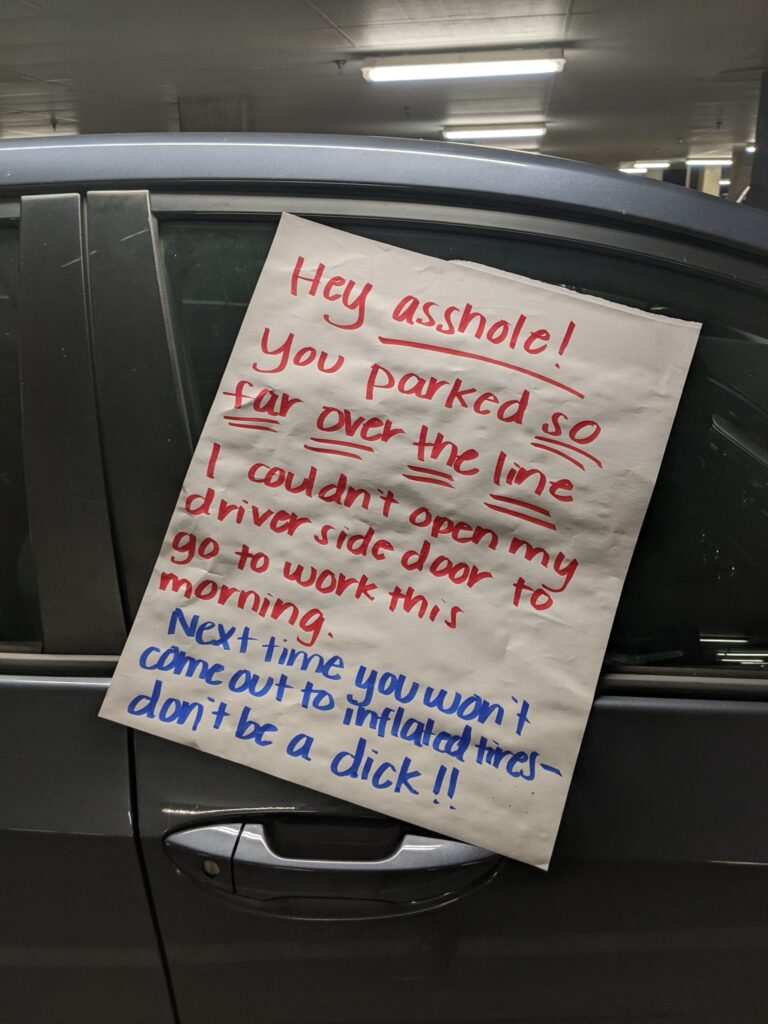 Hey asshole!
You parked so
far over the line
I couldn't open my
driver side door to
go to work this
morning.
Next time you won't
come out to inflated tires–
don't be a dick!!